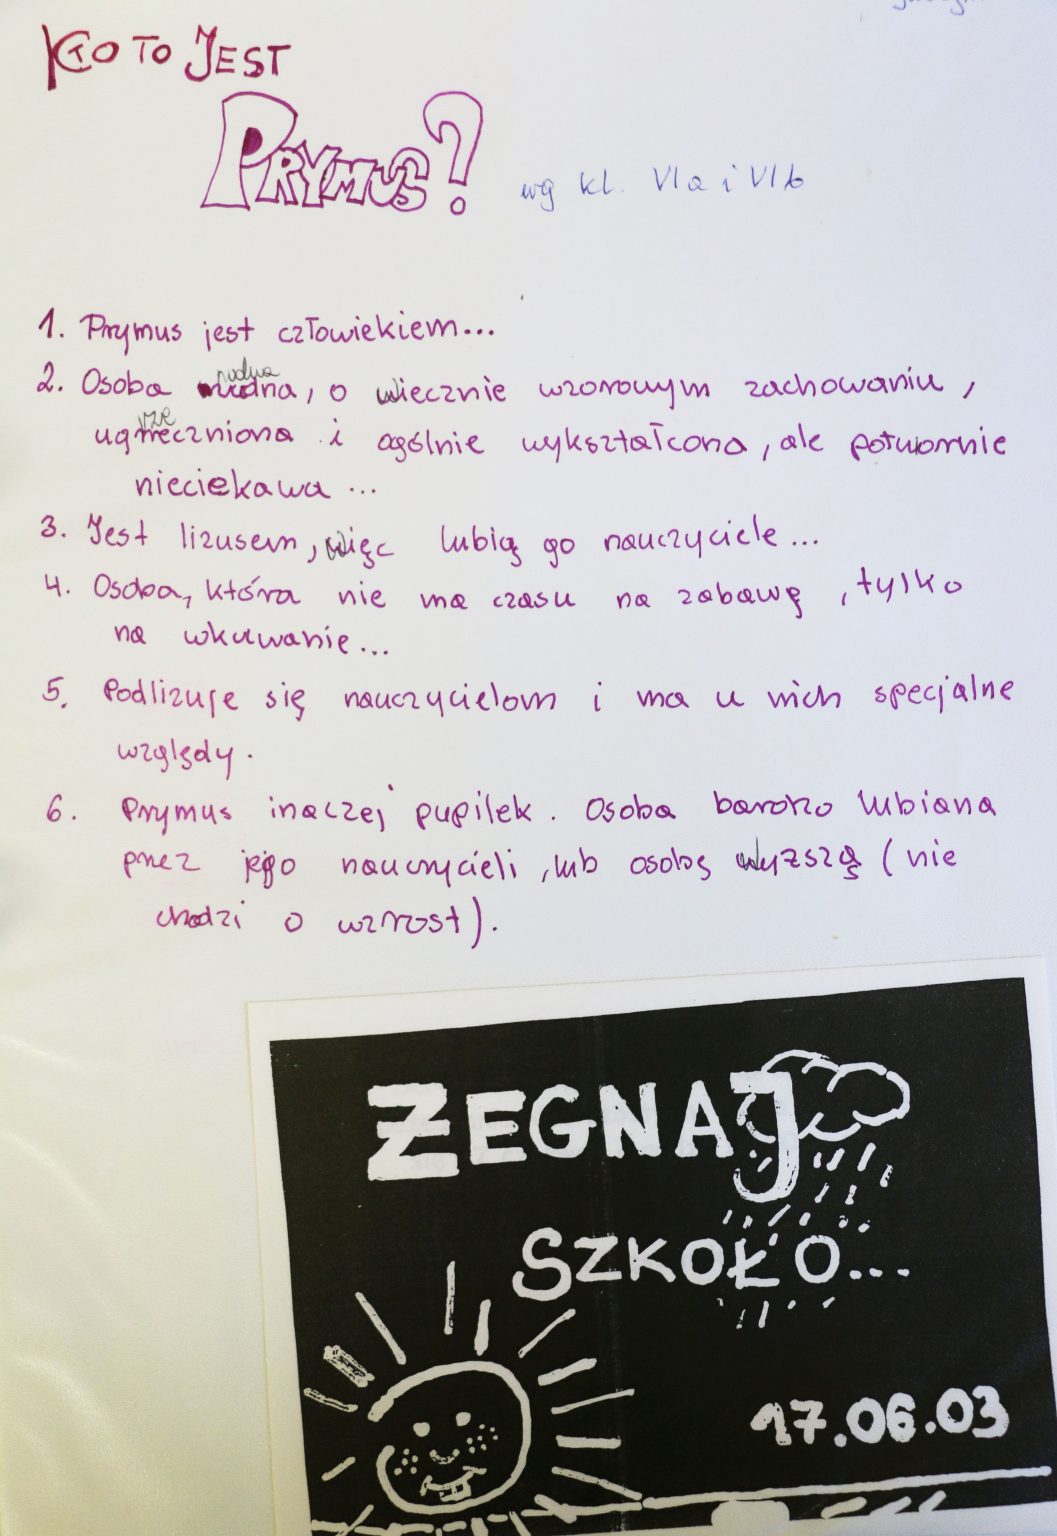 KTO TO JEST
PRYMUS?
wg kl. VIa i VIb
1. Prymus jest człowiekiem...
2. Osoba nudna, o wiecznie wzorowym zachowaniu,
ugrzeczniona i ogólnie wykształcona, ale potwornie
nieciekawa...
3. Jest lizusem, więc lubią go nauczyciele...
4. Osoba, która nie ma czasu na zabawę, tylko
na wkuwanie...
5. Podlizuje się nauczycielom i ma u nich specjalne
względy.
6. Prymus inaczej pupilek. Osoba bardzo lubiana
przez jego nauczycieli, lub osobę wyższą (nie
chodzi o wzrost).
ŻEGNAJ
SZKOŁO...
17.06.03